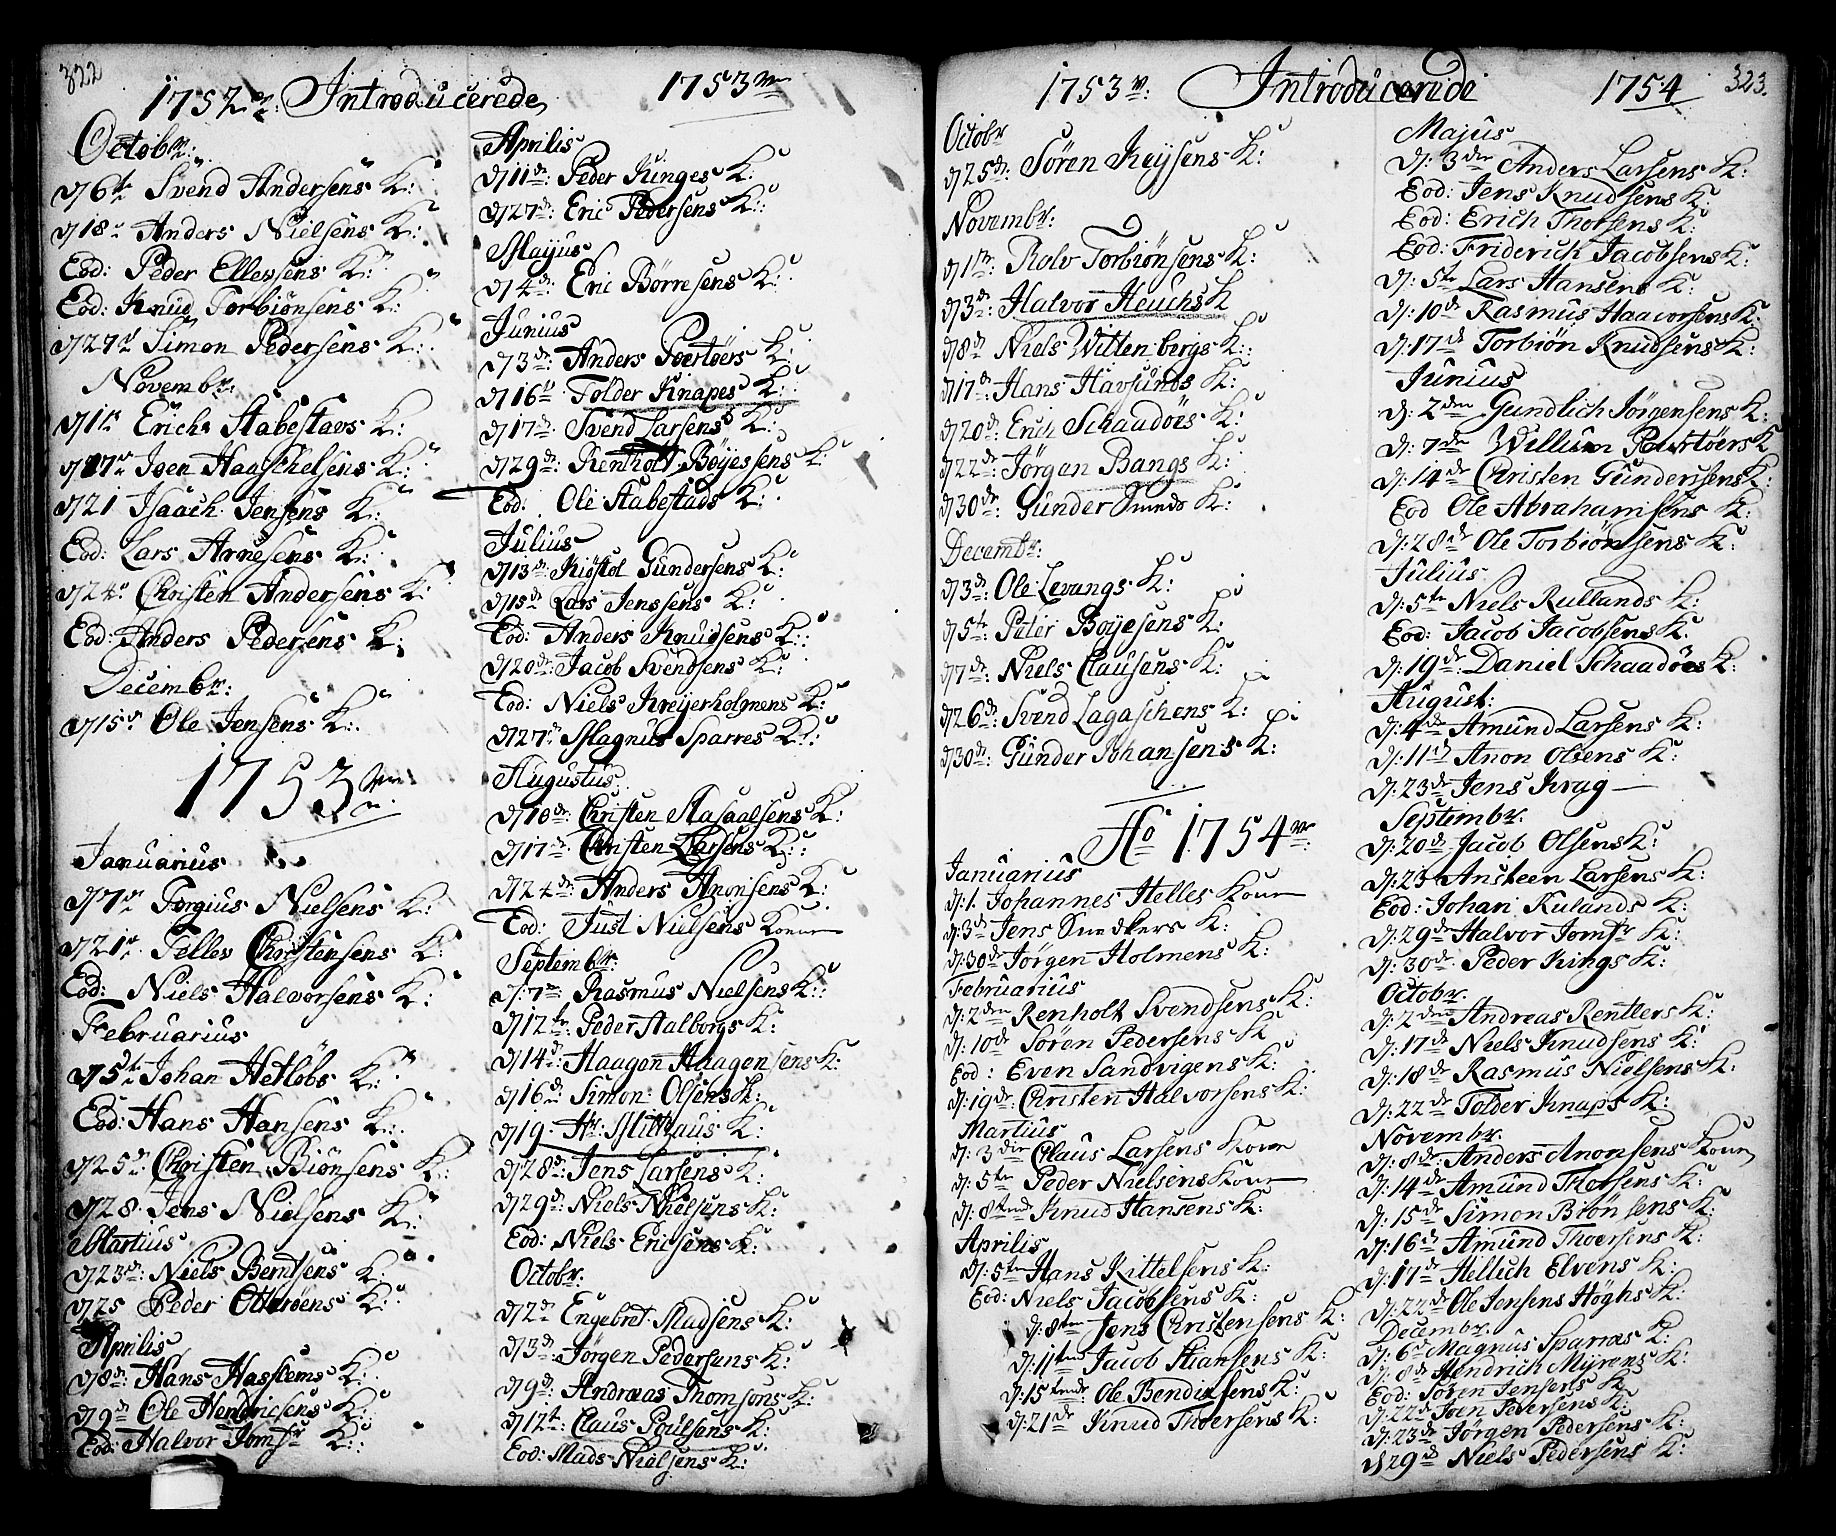 322
1752 Introducerede 1753
Octobr:
d 6te Svend Andersens K:
d 18 Anders Nielsens K:
Eod: Peder Ellensens K:
Eod: Knud Torbiönsens K:
d 27 Simon Pedersens K:
Novembr:
d 1 Erichs Stabestads K:
d 17 Joen K:
d 21 Isaach Jensens K:
Eod: Lars Arnesens K:
d 24 Christen Andersens K:
Eod: Anders Pedersens K:
Decembr:
d 15 Ole Jensens K:
1753
Januarius
d 7 Nielsens K:
d 21 Christensens K:
Eod: Niels Halvorsens K:
Februarius
d 5te Johan Hetlöbs K:
Eod: Hans Hansens K:
d 25 Christen Biönsens K:
d 28 Jens Nielsens K:
Martius
d 23 Niels Berntsens K:
d 25 Peder Otteröens K:
Aprilis
d 8 Hans Hasslems K:
d 9 Ole Hendricsens K:
Eod: Halvor Jomfr K:
Aprilis
d 11 Peder Kinges K:
d 27 Eric Pedersens K:
Majus
d 4 Eric Börresens K:
Junius
d 3 Anders K:
d 16 Tolder Knapes K:
d 17 Svend Larsens K:
d 29 Rentholt Böyessens K:
Eod: Ole Stabestads K:
Julius
d 13 Kiöstol Gundersens K:
d 15 Lars Jenssens K:
Eod: Anders Knudsens K:
d 20 Jacob Svendsens K:
Eod: Niels Kreyerholmens K:
d 27 Magnus Sparres K:
Augustus
d 10 Christen K:
d 17 Christen Larsens K:
d 24 Anders Anonsens K:
Eod: Just Nielsens Koene
Septembr:
d: 7 Rasmus Nielsens K:
d 12te Peder Aalborgs K:
d 14 Haagen Haagensens K:
d 16 Simon Olsens K:
d 19 Hr: Milthaus K:
d 28 Jens Larsens K:
d 29 Niels Nielsens K:
Eod: Niels Ericsens K:
Octobr:
d 2 Engebret Madsens K:
d 3 Jörgen Pedersens K:
d 9 Andreas Thomsons K:
d 12te Claus Poulsens K:
Eod: Mads Nielsens K:
1753 Introducerede 1754
323.
Octobr
d 25 Sören K:
Novembr:
d 1ste Rolv Torbiönsens K:
d 3 Halvor Heuchs K
d 8 Niels Wittenbergs K:
d 17 Hans Havsunds K:
d 20 Erich Schaadöes K:
d 22 Jörgen Bangs K:
d 30 Gunder Smeds K:
Decembr:
d 3 Ole Levangs K:
d 5te Peter Boyesens K:
d 7 Niels Clausens K:
d 26 Svend Lagaschens K:
d 30 Gunder Johansens K:
Ao 1754
Januarius
d: 1. Johannes Helles Kone
d: 3 Jens Snedkers K:
d: 30 Jörgen Holmens K:
Februarius
d: 2den Renholt Svendsens K:
d: 10de Sören Pedersens K
Eod: Even Sandvigens K:
d: 19de Christen Halvorsens K:
Martius
d: 3die Claus Larsens Kone
d: 5te Peder Nielsens Kone
d: 8tende Knud Hansens K:
Aprilis
d: 5te Hans Kittelsens K:
Eod: Niels Jacobsens K:
d: 8ten Jens Christensens K:
d: 11ten Jacob Stiansens K:
d: 15tende Ole Bendixsens K:
d: 21de Knud Thoersens K:
Majus
d: 3die Anders Larsens K:
Eod: Jens Knudsens K:
Eod: Erich Thorsens K:
Eod: Friderich Jacobsens K:
d: 5te Lars Hansens K:
d: 10de Rasmus Haavorsens K:
d: 17de Torbiön Knudsens K:
Junius
d: 2den Gundlich Jörgensens K:
d: 7de Willum K
d: 14de Christen Gundersens K:
Eod Ole Abrahamsens K:
d: 28de Ole Torbiönsens K:
Julius
d: 5te Niels Rullands K:
Eod: Jacob Jacobsens K:
d: 19de Daniel Schaadöes K:
August:
d: 4de Amund Larsens K:
d: 11te Anon Olsens K:
d: 23de Jens Krag
Septembr.
d: 20de Jacob Olsens K:
d: 23 Ansteen Larsens K:
Eod: Johan Rulands K:
d: 29de Halvor Jomfr K:
d: 30de Peder Kings K:
Octobr.
d: 2den Andreas Rentlers K:
d: 17de Niels Knudsens K:
d: 18de Rasmus Nielsens K:
d: 22de Tolder Knaps K:
Novembr.
d: 8de Anders Anonsens Kone
d: 14de Amund Thorsens K:
d: 15de Simon Biönsens K:
d: 16de Amund Thoersens K:
d: 17de Hellich Elvens K:
d: 22de Ole Jensens Höghs K:
Decembr.
d: 6te Magnus Sparres K:
d: 8de Hendrich Myrens K:
Eod: Sören Jensens K
d: 22de Joen Pedersens K:
d: 23de Jörgen Pedersens K:
d 29de Niels Pedersens K: